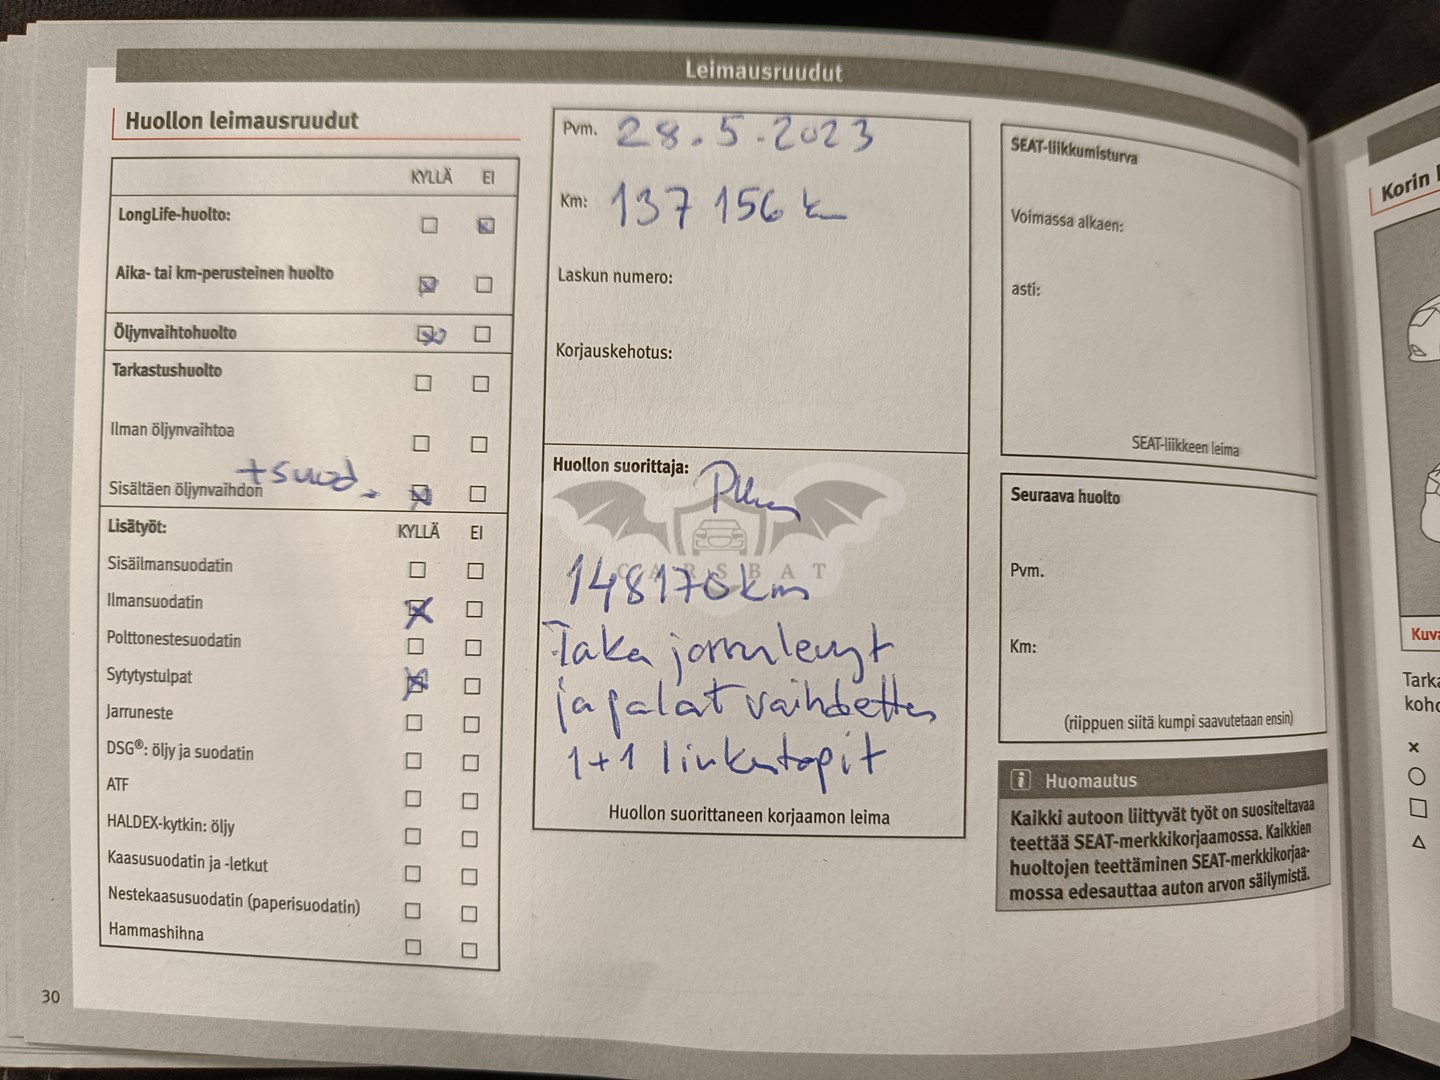 Leimausruudut
Huollon leimausruudut
KYLLÄ EI
LongLife-huolto:
Aika- tai km-perusteinen huolto
Öljynvaihtohuolto
Tarkastushuolto
Ilman öljynvaihtoa
+suod.
Sisältäen öljynvaihdon
Lisätyöt: KYLLÄ EI
Sisäilmansuodatin
Ilmansuodatin
Polttonestesuodatin
Sytytystulpat
Jarruneste
DSG®: öljy ja suodatin
ATF
HALDEX-kytkin: öljy
Kaasusuodatin ja -letkut
Nestekaasusuodatin (paperisuodatin)
Hammashihna
30
Pvm. 28.5.2023
Km: 137 156 km
Laskun numero:
Korjauskehotus:
Huollon suorittaja:
CARSBAT
148170 km
Taka jarrulevyt
ja palat vaihdettu
1+1 linkstapit
Huollon suorittaneen korjaamon leima
SEAT-liikkumisturva
Voimassa alkaen:
asti:
SEAT-liikkeen leima
Seuraava huolto
Pvm.
Km:
(riippuen siitä kumpi saavutetaan ensin)
i Huomautus
Kaikki autoon liittyvät työt on suositeltavaa
teettää SEAT-merkkikorjaamossa. Kaikkien
huoltojen teettäminen SEAT-merkkikorjaa-
mossa edesauttaa auton arvon säilymistä.
Korin
Kuva
Tarka
koho